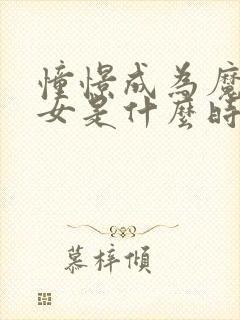 憧憬成為魔
女是什麼時
慕梓傾